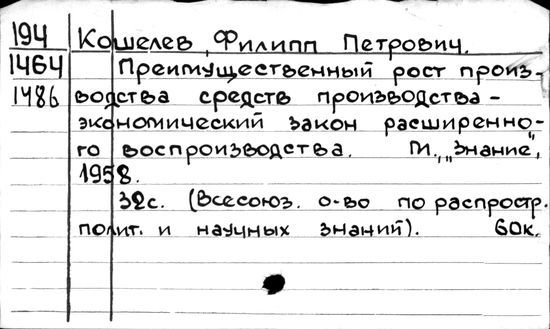 194 Кошелев, Филипп Петрович.
1464 Преимущественный рост произ-
1486 водства средств производства -
экономический закон расширенно-
го воспроизводства. М., "Знание",
1958.
32с. (Всесоюз. о-во по распростр.
полит. и научных знаний). 60к.